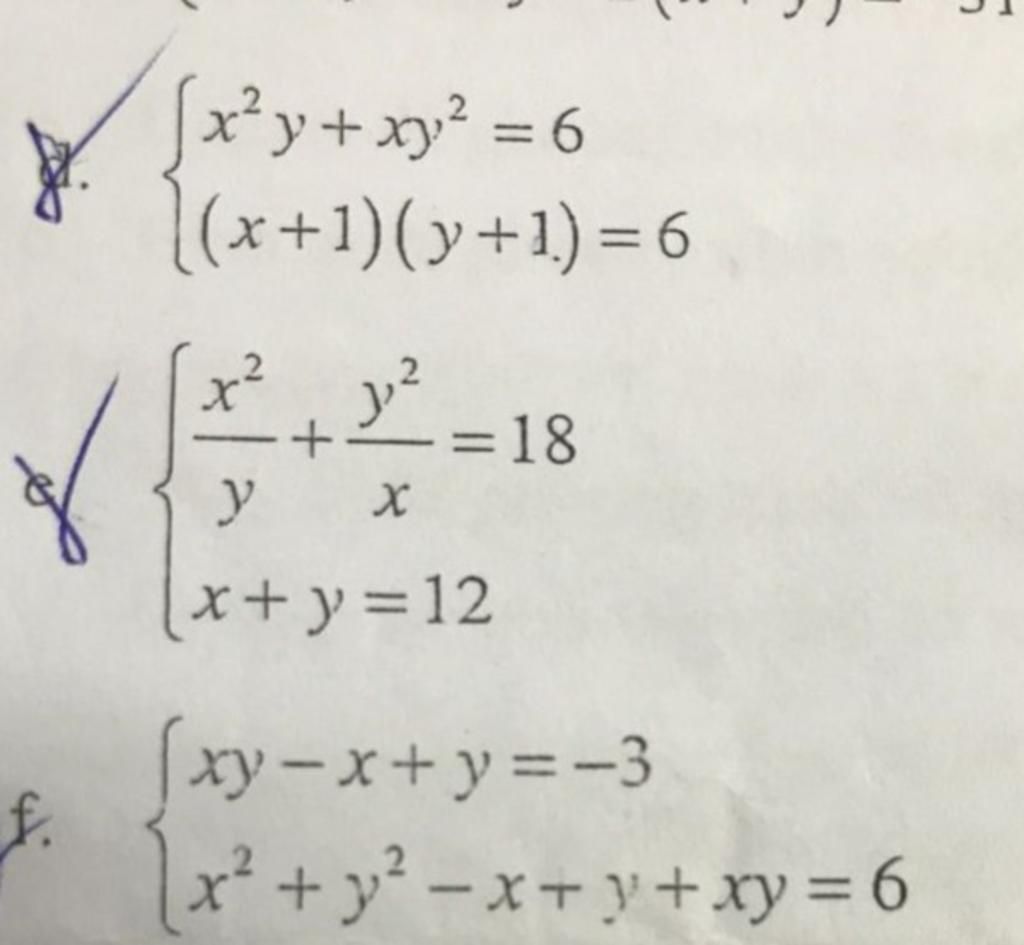 d. x²y + xy² = 6
(x+1)(y+1) = 6
e. x²/y + y²/x = 18
x + y = 12
f. xy − x + y = −3
x² + y² − x + y + xy = 6